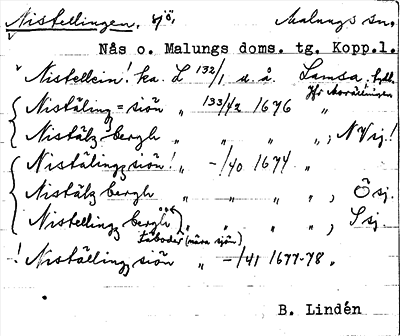 Nistellingen, sjö, Malungs sn.
Nås o. Malungs doms. tg. Kopp.l.
Nistellein! ka. L 132/1 u. å. Lamsa
Nistäling=siön " 133/42 1676 "
Nistälz bergh " " " " ; N Vsj.!
Nistälingz siön! " -/40 1674 "
Nistälz bergh " " " " ; Ö sj.
Nistellingz bergh " " " " ; S sj
fäboder (nära sjön)
! Niställingz siön " -/41 1677-78 "
B. Lindén